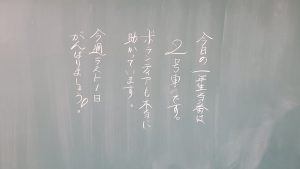 今日の一年生当番は
2号車です。
ボランティアも本当に
助かっています。
今週ラスト1日
がんばりましょう。